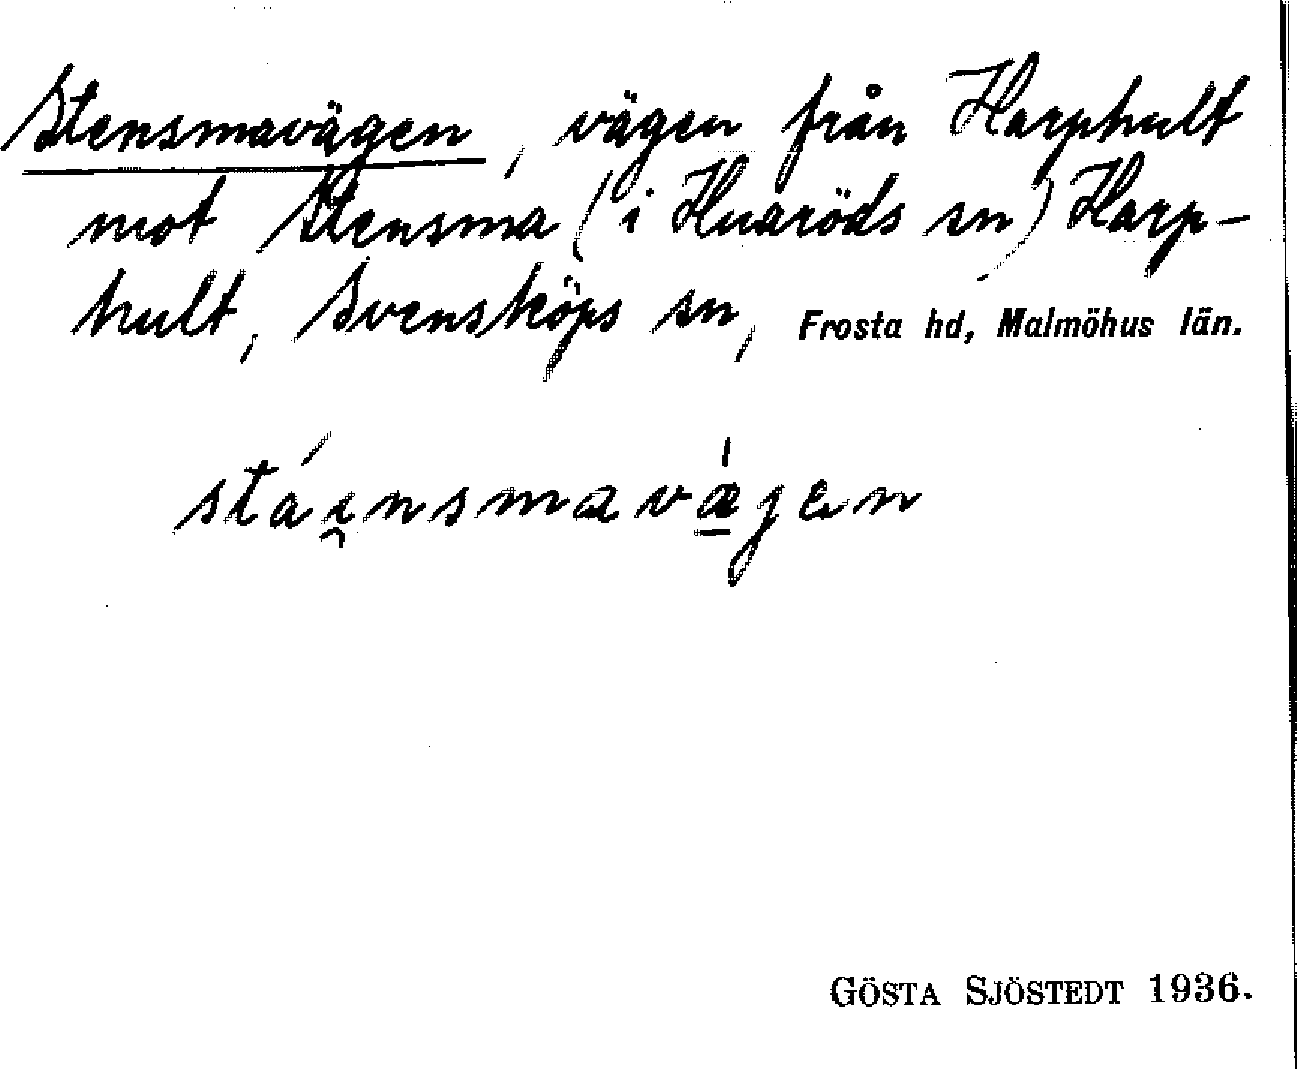 Stensmavägen, vägen från Harphult
mot Stensma (i Huaröds sn) Harp-
hult, Svensköps sn, Frosta hd, Malmöhus län.
stái̯nsmavǽ̠gen
GÖSTA SJÖSTEDT 1936.